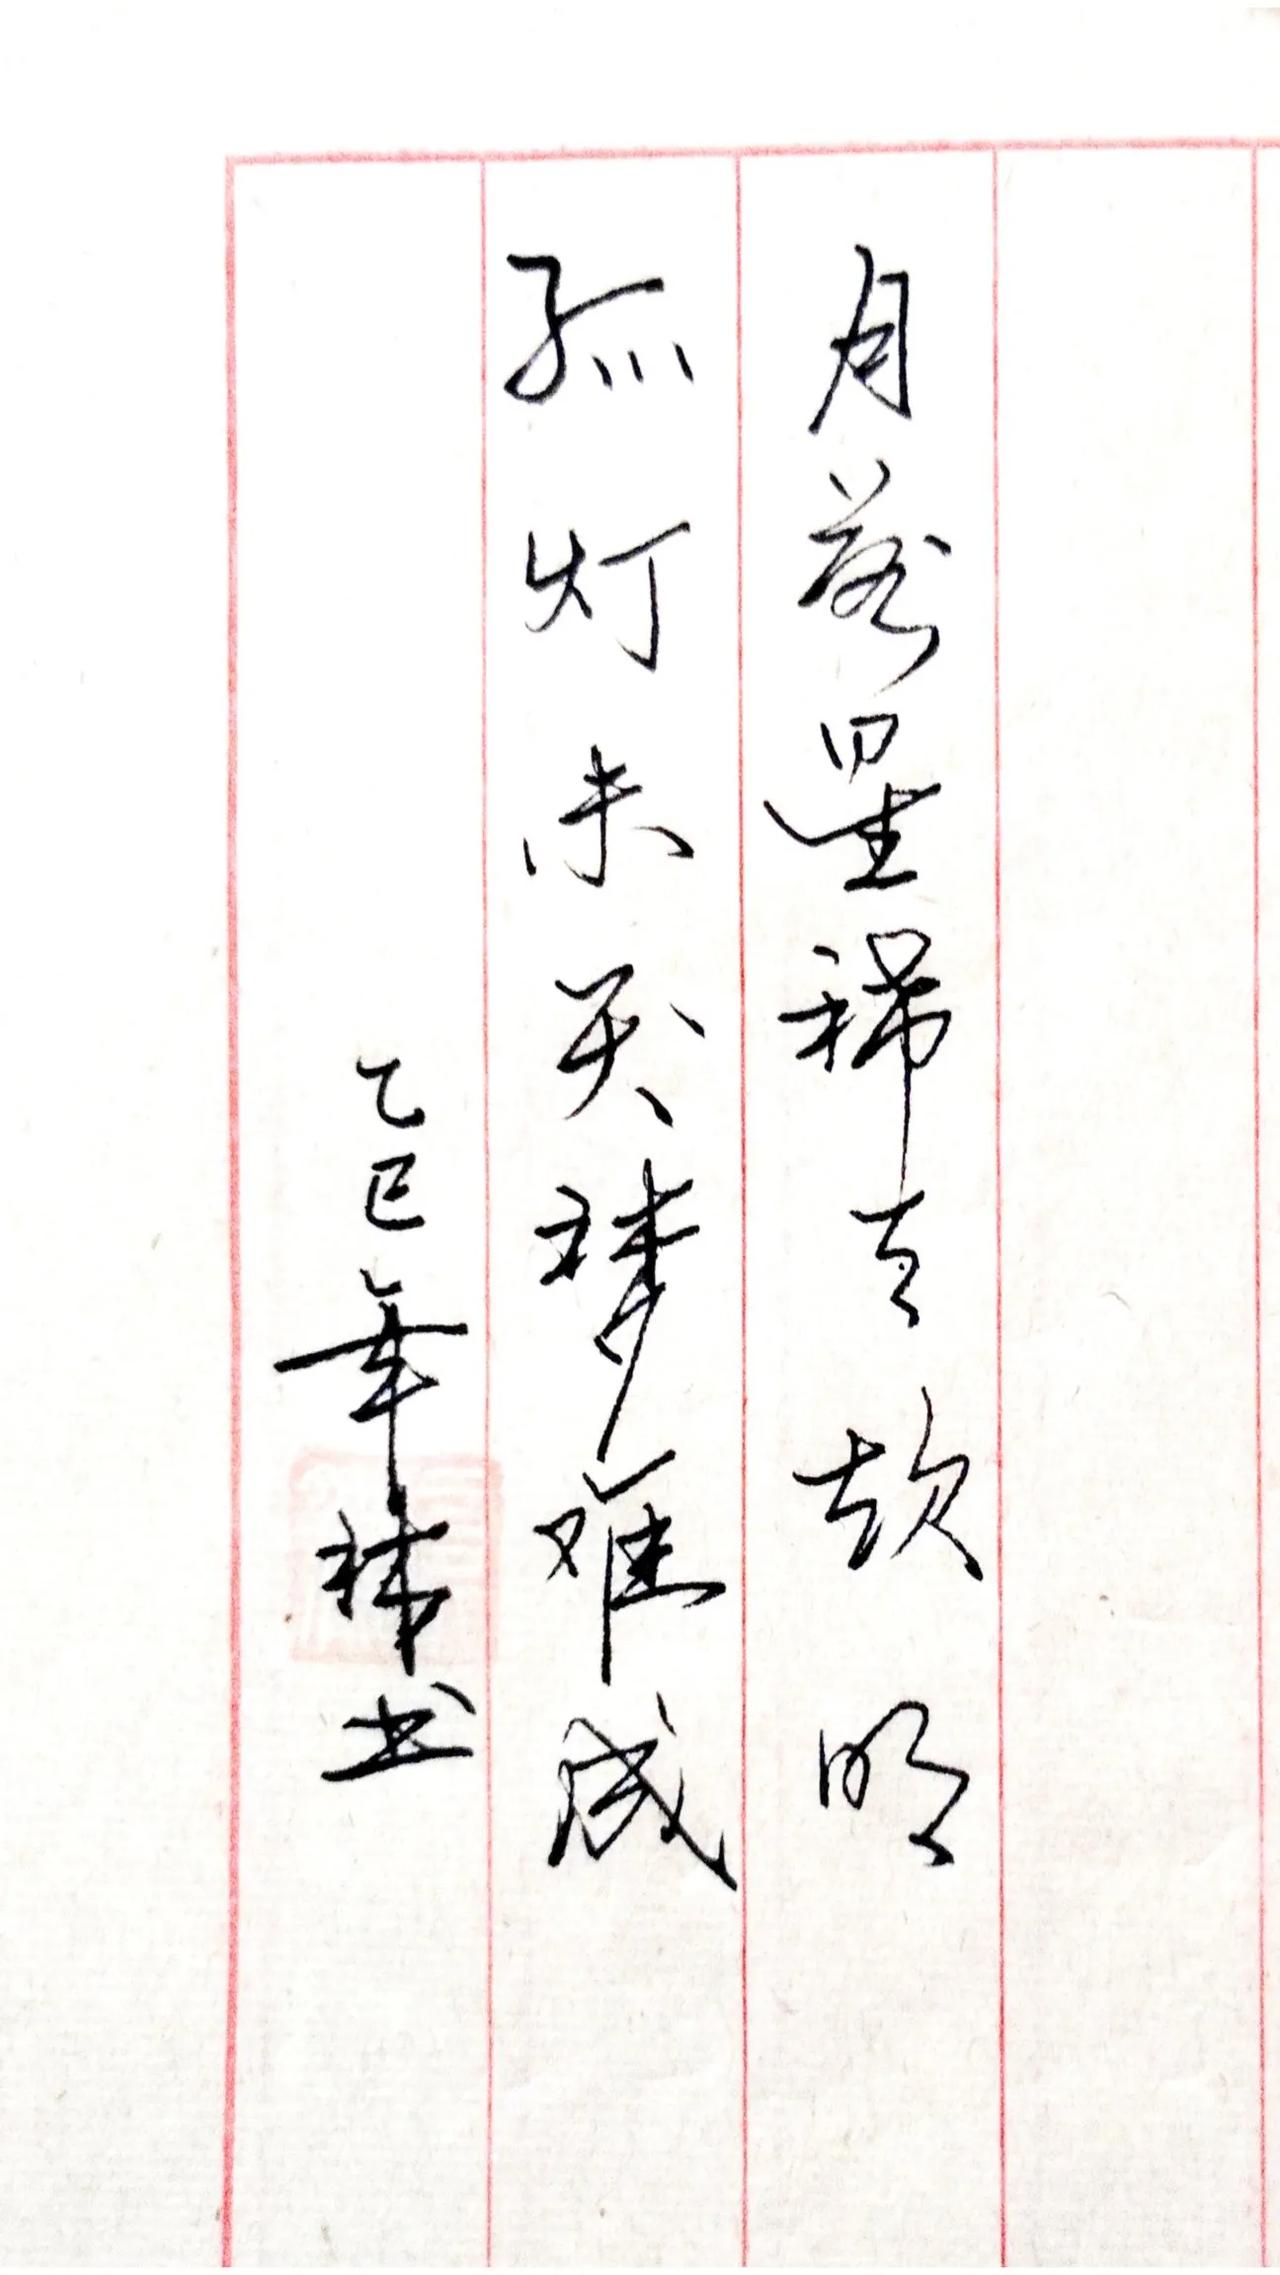 月落星稀天欲明
孤灯未灭梦难成
乙巳年 书